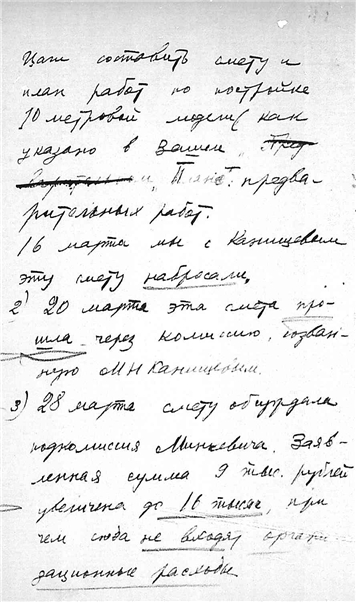 цам составить смету и
план работ по постройке
10 метровой модели (как
указано в Вашем „Пред
варительном „Плане". предва-
рительных работ.
16 марта мы с Канищевым
эту смету набросали.
2) 20 марта эта смета про-
шла через комиссию, созван-
ную МН Канищевым.
3) 28 марта смету обсуждала
подкомиссия Минкевича. Заяв-
ленная сумма 9 тыс. рублей
увеличена до 16 тысяч, при
чем сюда не входят органи
зационные расходы